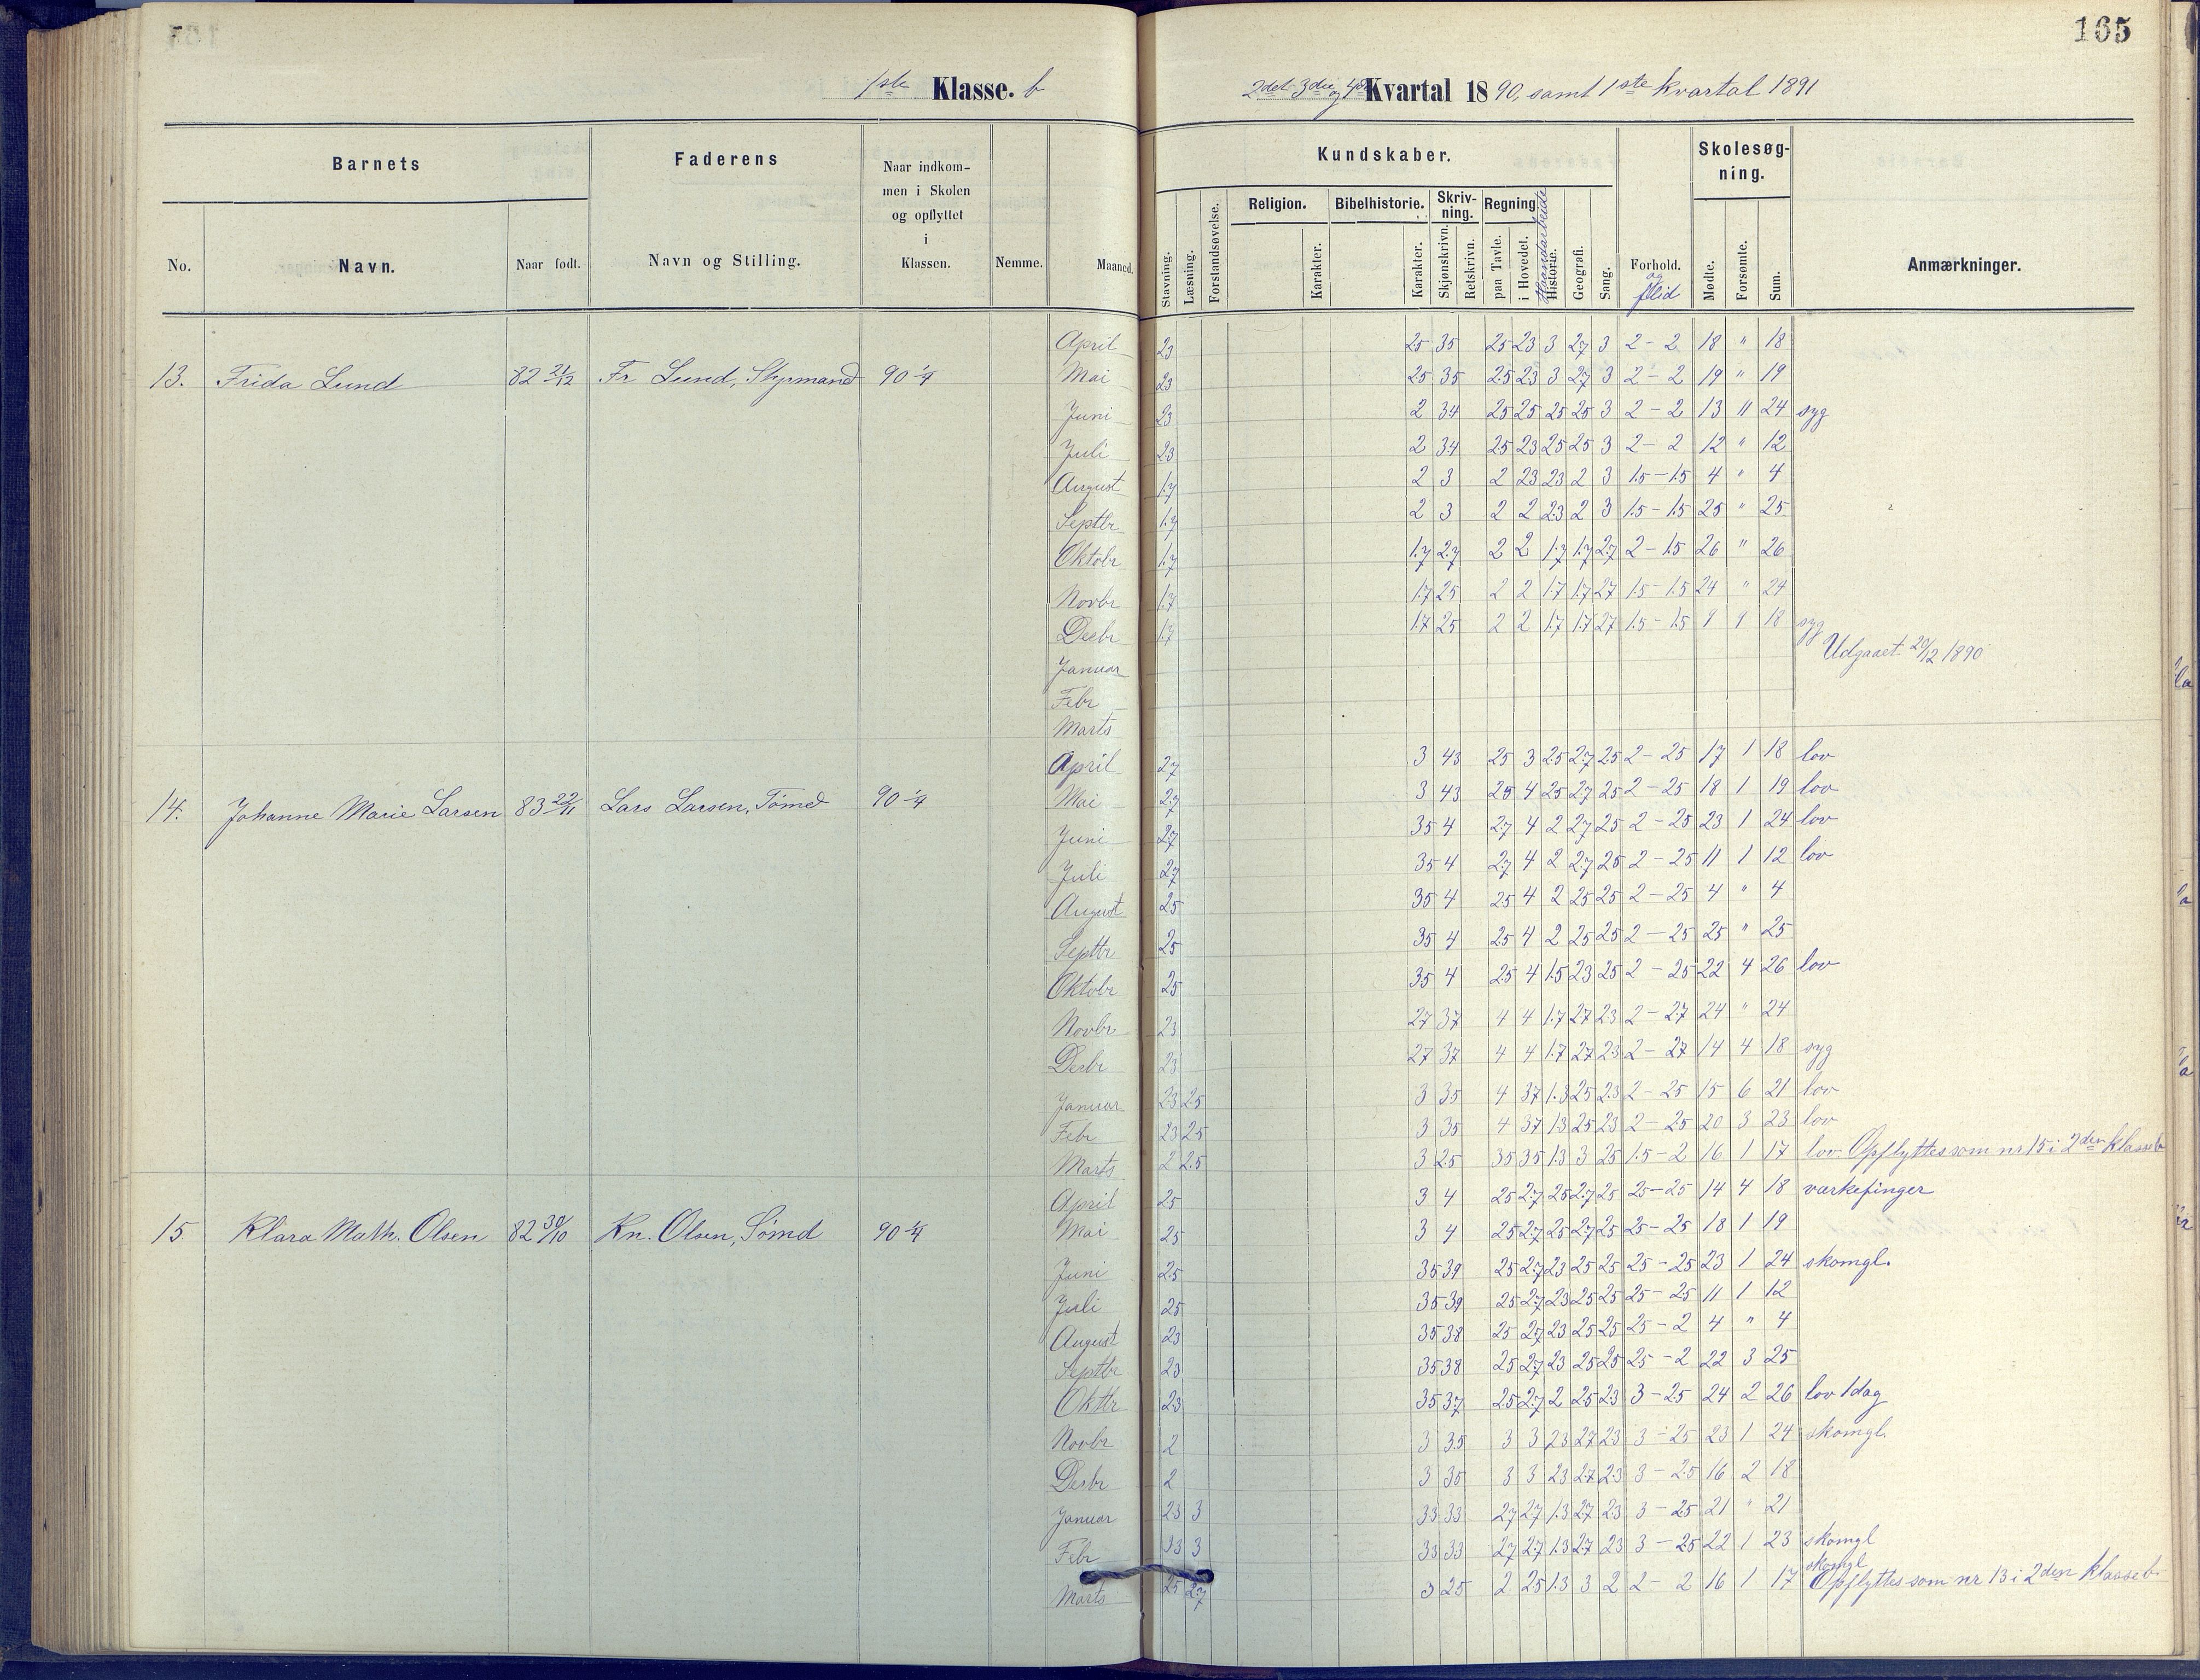 165
1ste Klasse. b
2det 3die og 4de Kvartal 1890, samt 1ste kvartal 1891
Barnets
Faderens
Naar indkom-
men i Skolen
og opflyttet
i
Klassen.
No.
Navn.
Naar født.
Navn og Stilling.
Nemme.
Maaned.
Kundskaber.
Skolesøg-
ning.
Stavning.
Læsning.
Forstandsøvelse.
Religion.
Karakter.
Bibelhistorie.
Karakter.
Skriv-
ning.
Skjønskrivn.
Retskrivn.
Regning
paa Tavle.
i Hovedet.
Haandarbeide
Historie.
Geografi.
Sang.
Forhold.
og
flid
Mødte.
Forsømte.
Sum.
Anmærkninger.
April 23 25 35 25 23 3 27 3 2-2 18 " 18
13. Frida Lund 82 21/12 Fr Lund, Styrmand 90 1/4 Mai 23 25 35 25 23 3 27 3 2-2 19 " 19
Juni 23 2 34 25 25 25 25 3 2-2 13 11 24 syg
Juli 23 2 34 25 23 25 25 3 2-2 12 " 12
August 17 2 3 2 23 23 2 3 15-15 4 " 4
Septbr 17 2 3 2 2 23 2 3 15-15 25 " 25
Oktobr 17 17 27 2 2 17 17 27 2-15 26 " 26
Novbr 17 17 25 2 2 17 17 27 15-15 24 " 24
Desbr 17 17 25 2 2 17 17 27 15-15 9 9 18 syg
Udgaaet 20/12 1890
Januar
Febr
Marts
April 27 3 43 25 3 25 27 25 2-25 17 1 18 lov
14. Johanne Marie Larsen 83 22/11 Lars Larsen, Tømd 90 1/4 Mai 27 3 43 25 4 25 27 25 2-25 18 1 19 lov
Juni 27 35 4 27 4 2 27 25 2-25 23 1 24 lov
Juli 27 35 4 27 4 2 27 25 2-25 11 1 12 lov
August 25 35 4 25 4 2 25 25 2-25 4 " 4
Septbr 25 35 4 25 4 2 25 25 2-25 25 " 25
Oktobr 25 35 4 25 4 15 23 25 2-25 22 4 26 lov
Novbr 23 27 37 4 4 17 27 23 2-27 24 " 24
Desbr 23 27 37 4 4 17 27 23 2-27 14 4 18 syg
Januar 23 25 3 35 4 37 13 25 23 2-25 15 6 21 lov
Febr 23 25 3 35 4 37 13 25 23 2-25 20 3 23 lov
Marts 2 25 3 25 35 35 13 3 25 15-2 16 1 17 lov Opflyttes som nr 15 i 2den klasse b
April 25 3 4 25 27 25 27 25 25-25 14 4 18 værkefinger
15. Klara Math. Olsen 82 30/10 Kn. Olsen, Sømd 90 1/4 Mai 25 3 4 25 27 25 27 25 25-25 18 1 19
Juni 25 35 39 25 27 23 25 25 25-25 23 1 24 skomgl.
Juli 25 35 39 25 27 23 25 25 25-25 11 1 12
August 23 35 38 25 27 23 25 25 25-2 4 " 4
Septbr 23 35 38 25 27 23 25 25 25-2 22 3 25
Oktbr 23 35 37 25 27 2 25 23 3-25 24 2 26 lov 1 dag
Novbr 2 3 35 3 3 23 27 23 3-25 23 1 24 skomgl.
Desbr 2 3 35 3 3 23 27 23 3-25 16 2 18
Januar 23 3 33 33 27 27 13 27 23 3-25 21 " 21
Febr 33 3 33 33 27 27 13 27 23 3-25 22 1 23 skomgl
Marts 25 27 3 25 2 25 13 3 2 2-2 16 1 17 skomgl
Opflyttes som nr 13 i 2den klasse b.